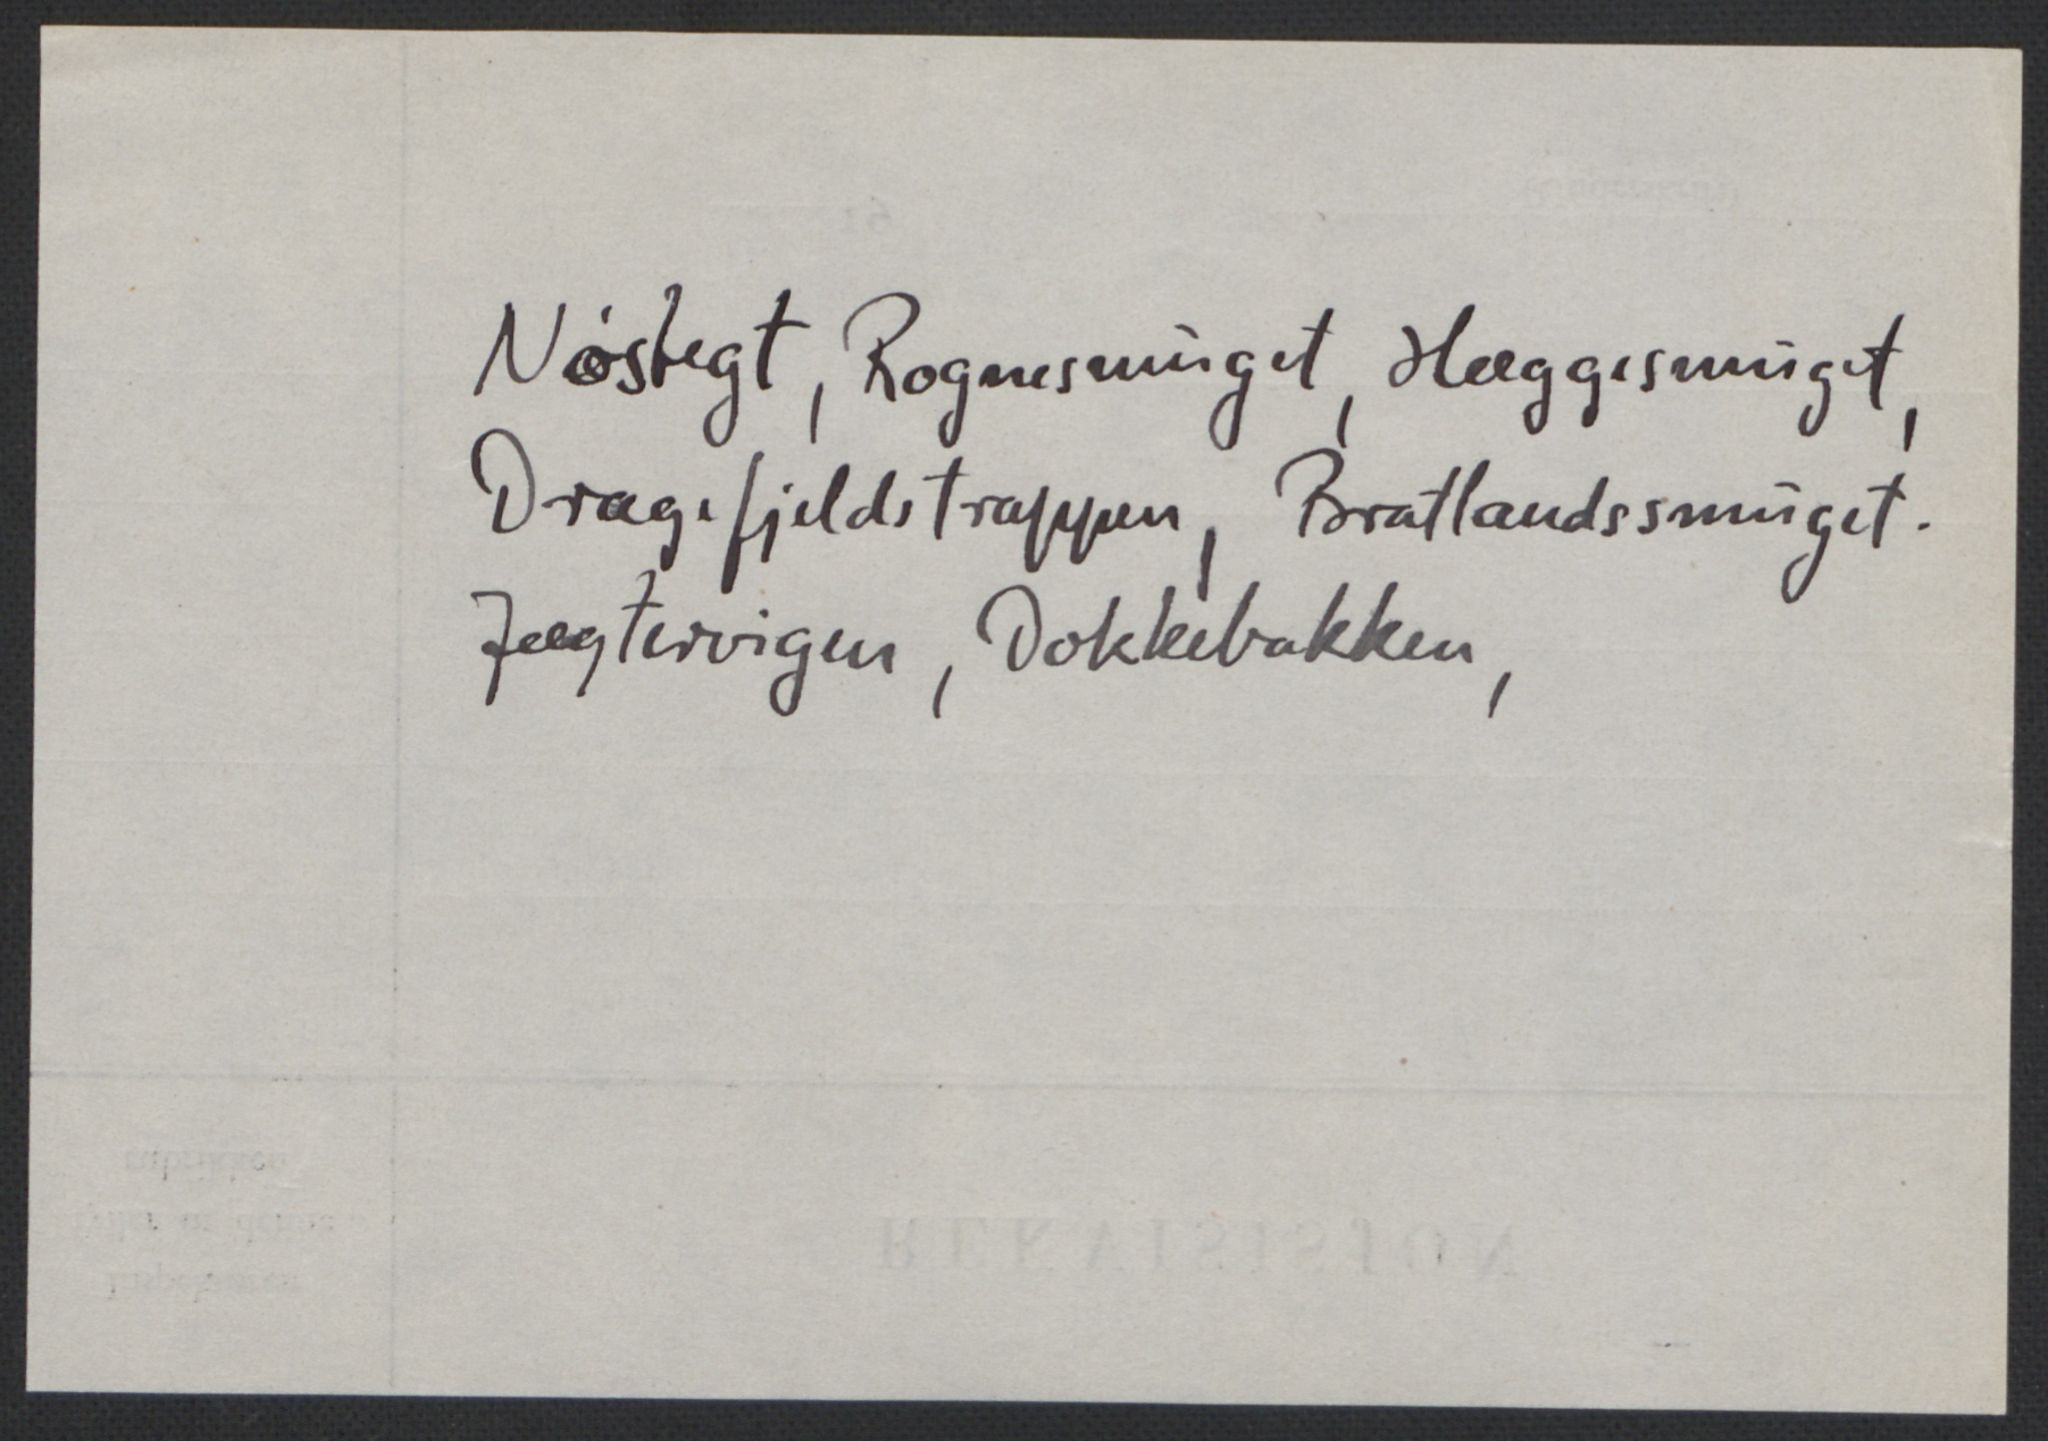 Nøstegt, Rognesmuget, Hæggesmuget,
Dragefjeldstrappen, Bratlandssmuget.
Jægtervigen, Dokkebakken,
REKVISISJON